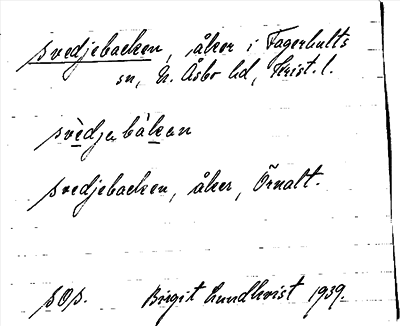 svedjebacken, åker i Fagerhults
sn, N. Åsbo hd, Krist. l.
svèdjebàkan
svedjebacken, åker, Örnalt.
sOp. Birgit Lundkvist 1939.